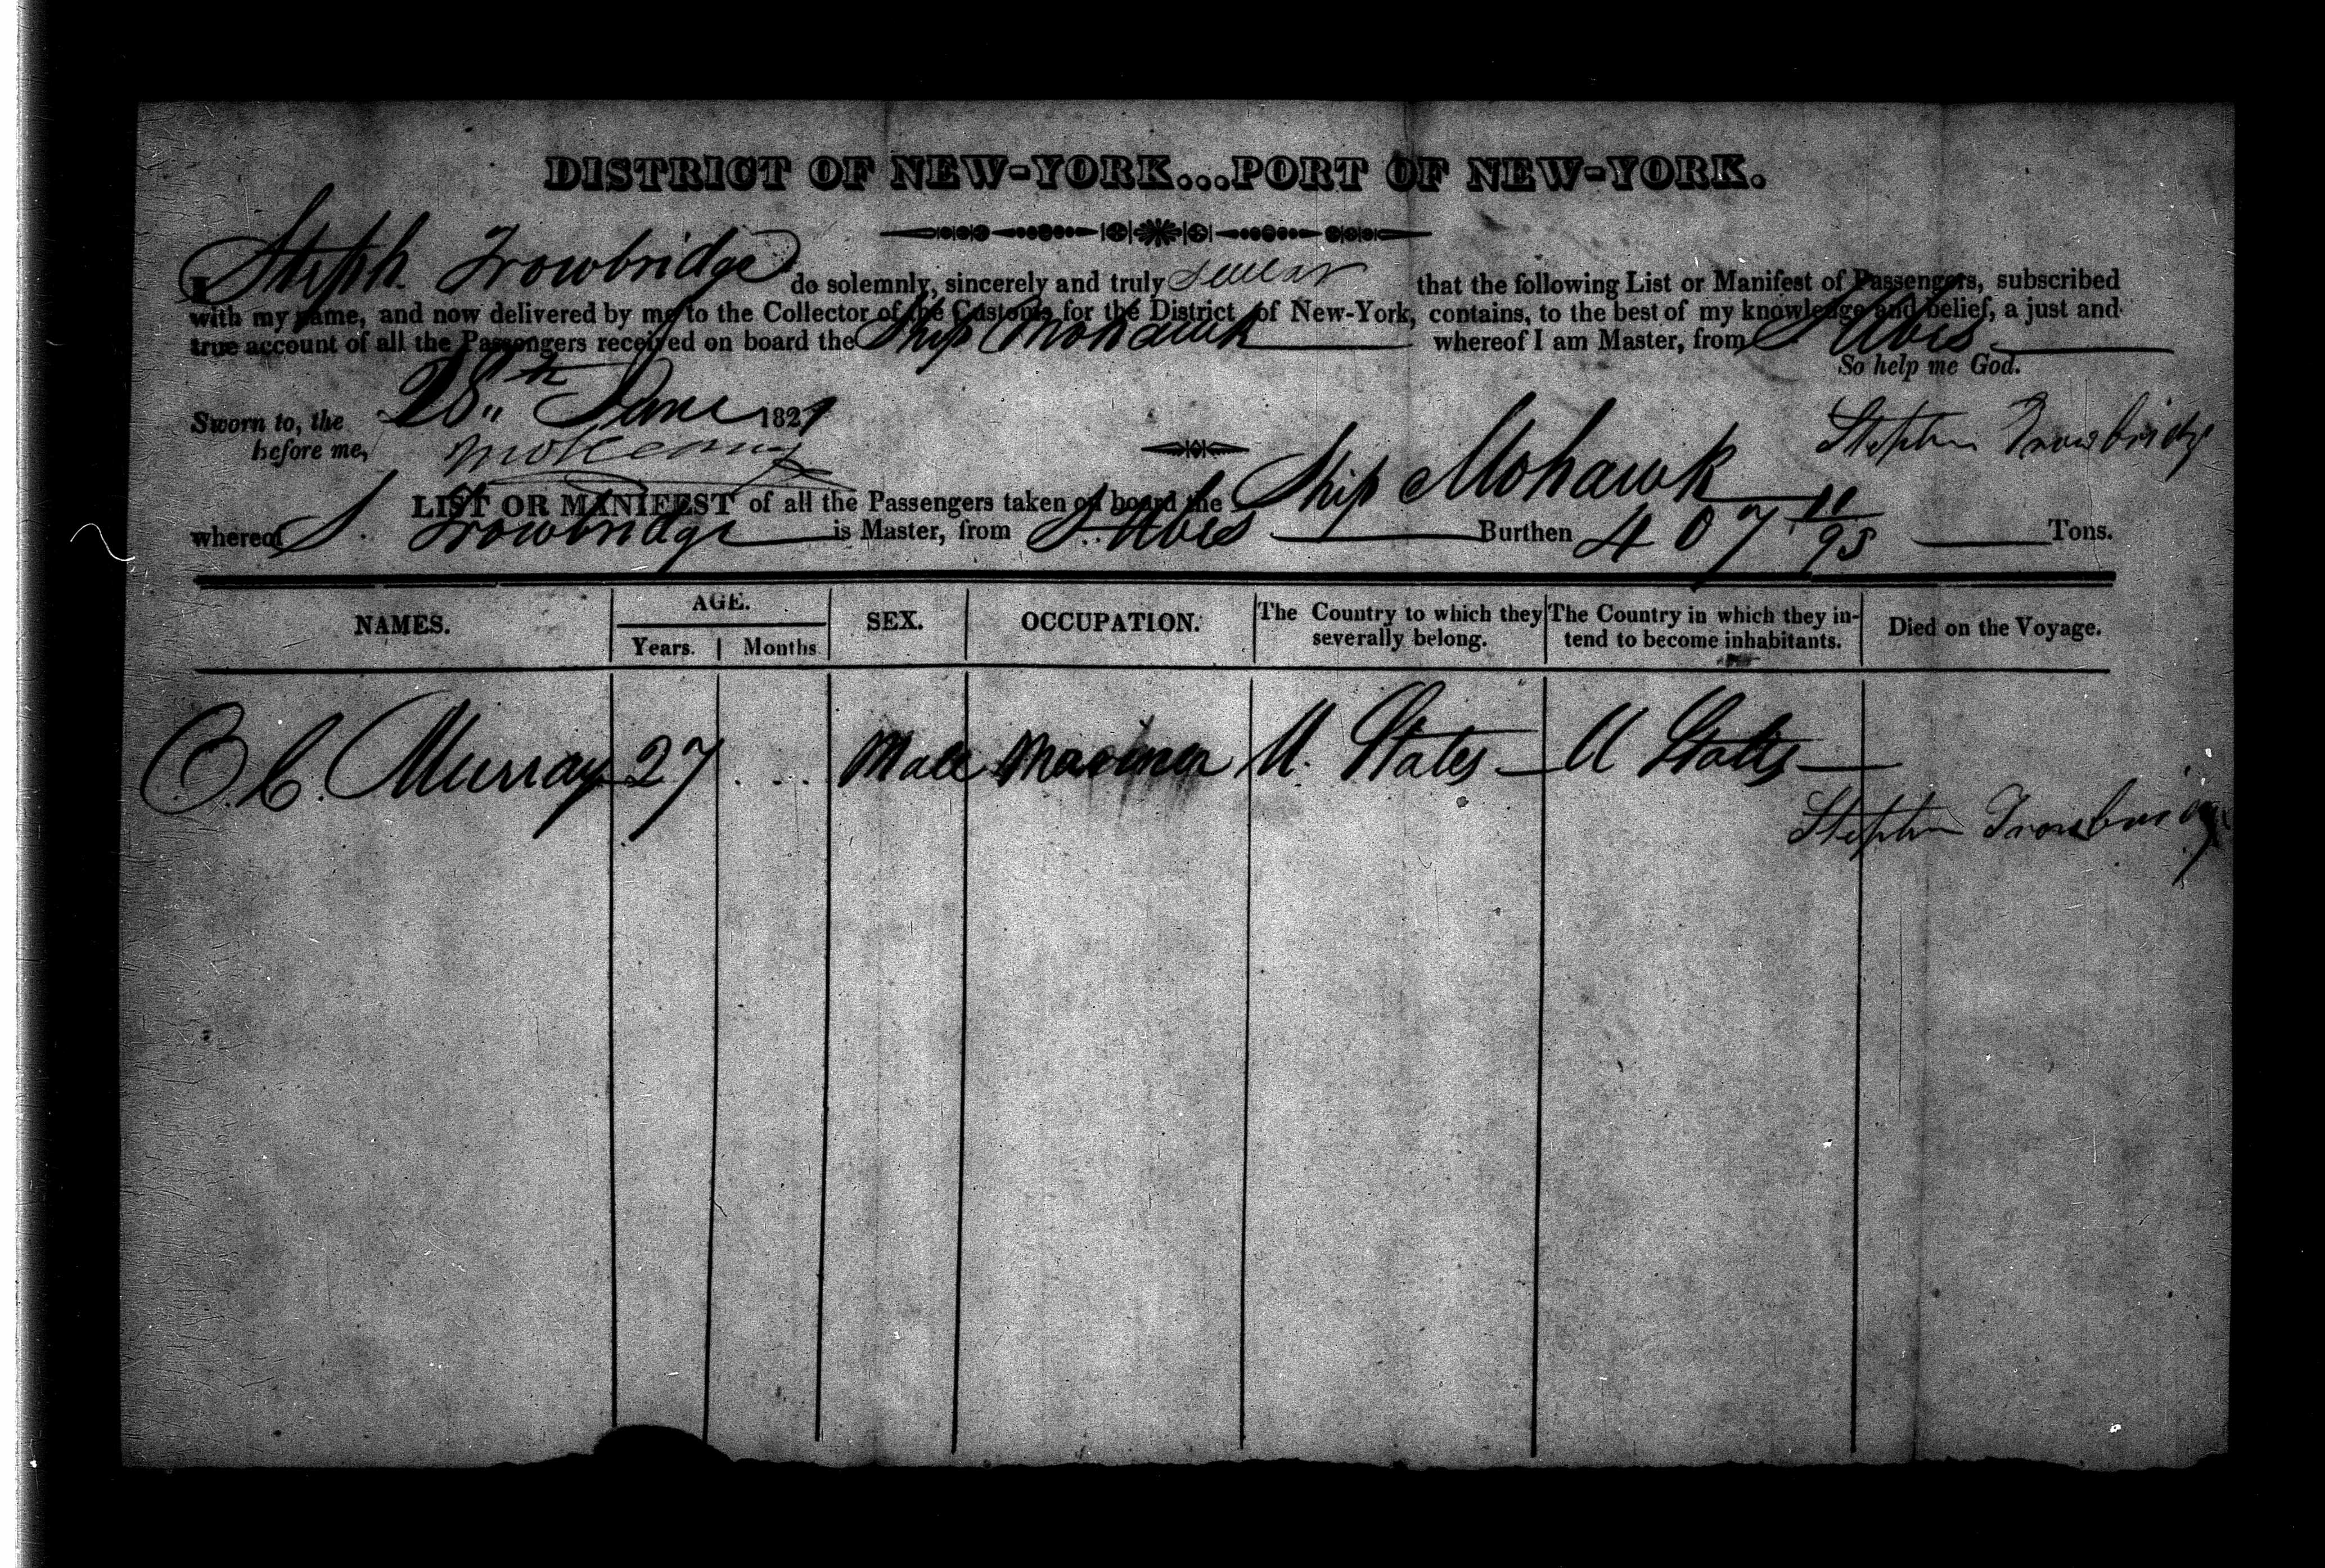 DISTRICT OF NEW-YORK...PORT OF NEW-YORK.
I Steph. Trowbridge do solemnly, sincerely and truly swear that the following List or Manifest of Passengers, subscribed
with my name, and now delivered by me to the Collector of the Customs for the District of New-York, contains, to the best of my knowledge and belief, a just and
true account of all the Passengers received on board the Ship Mohawk whereof I am Master, from St Ubes
So help me God.
Sworn to, the 28th June 1829
Stephen Trowbridge
before me,
LIST OR MANIFEST of all the Passengers taken on board the Ship Mohawk
whereof S. Trowbridge is Master, from St Ubes Burthen 407 11/95 Tons.
NAMES. AGE. Years. Months SEX. OCCUPATION. The Country to which they severally belong. The Country in which they intend to become inhabitants. Died on the Voyage.
C. C. Murray 27 . ... Male Mariner U. States U States
Stephen Trowbridge